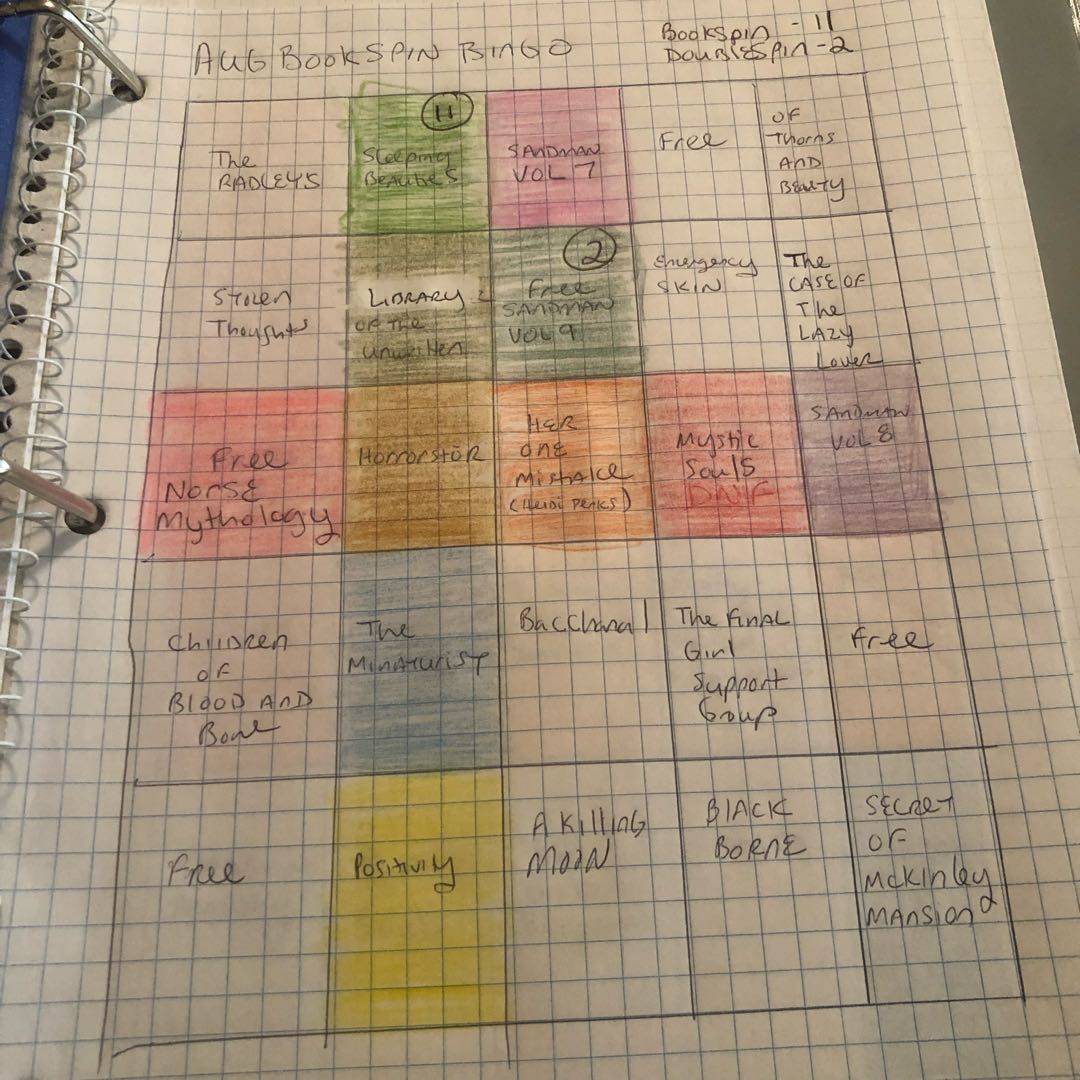 AUG BOOKSPIN BINGO
BOOKSPIN - 11
DOUBLESPIN - 2
The
RADLEYS
11
Sleeping
Beauties
SANDMAN
VOL 7
Free
OF
Thorns
AND
Beauty
Stolen
Thoughts
LIBRARY
OF THE
unwritten
2
Free
SANDMAN
VOL 9
Emergency
SKIN
The
CASE OF
The
LAZY
Lover
Free
NORSE
Mythology
Horrorstör
HER
ONE
MISTAKE
(Heidi Perks)
Mystic
Souls
DNF
SANDMAN
VOL 8
Children
OF
BLOOD AND
Bone
The
Minaturist
Bacchanal
The Final
Girl
Support
Group
Free
Free
Positivity
A Killing
Moon
BLACK
BORNE
SECRET
OF
McKinley
MANSION